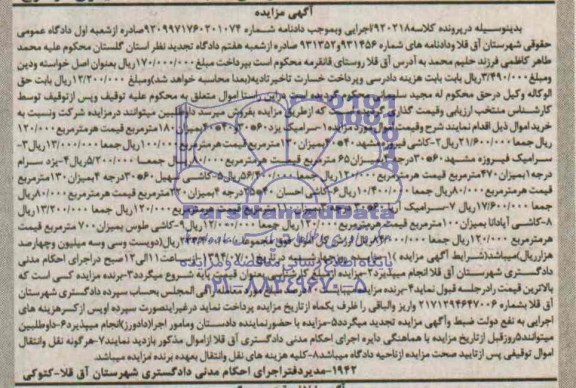 آگهی مزایده
بدینوسیله درپرونده کلاسه ۹۲۰۲۱۸ اجرایی وبموجب دادنامه شماره ۹۳۰۹۹۷۱۷۶۰۳۰۱۰۷۴ صادره ازشعبه اول دادگاه عمومی
حقوقی شهرستان آق قلا ودادنامه های شماره ۹۳۱۴۵۶و۹۳۱۳۵۲ صادره ازشعبه هفتم دادگاه تجدید نظر استان گلستان محکوم علیه محمد
طاهر کاظمی فرزند حلیم محمد به آدرس آق قلا روستای قانقرمه محکوم است بپرداخت مبلغ ۱۷۰/۰۰۰/۰۰۰ریال بعنوان اصل خواسته ودین
ومبلغ ۳/۴۹۰/۰۰۰ریال بابت هزینه دادرسی وپرداخت خسارت تاخیرتادیه(بعدا محاسبه خواهد شد)ومبلغ ۱۲/۲۰۰/۰۰۰ ریال بابت حق
الوکاله وکیل درحق محکوم له مجید سلیمانی محکوم گردیده است دراین راستا اموال متعلق به محکوم علیه توقیف وپس ازتوقیف توسط
کارشناس منتخب ارزیابی وقیمت گذاری که ازطریق مزایده بفروش میرسد داوطلبین میتوانند درمزایده شرکت ونسبت به
خرید اموال ذیل اقدام نمایند شرح وقیمت مورد مزایده ۱-سرامیک یزد بمیزان ۱۸۰مترمربع قیمت هرمترمربع ۱۲۰/۰۰۰
ریال جمعا ۲۱/۶۰۰/۰۰۰ریال ۲-کاشی فیروزه مشهد بمیزان ۱۳۰مترمربع قیمت هرمترمربع ۱۰۰/۰۰۰ریال جمعا ۱۳/۰۰۰/۰۰۰ریال ۳-
سرامیک فیروزه مشهد درجه بمیزان ۶۵ مترمربع قیمت هرمترمربع ۸۰/۰۰۰ریال جمعا ۵/۲۰۰/۰۰۰ریال ۴-یزد سرام
درجه ۱بمیزان ۴۷۰مترمربع قیمت هرمترمربع ۱۲۰/۰۰۰ریال جمعا ۵۶/۴۰۰/۰۰۰ریال ۵-کاشی سهیل درجه ۲بمیزان ۱۳۰مترمربع
قیمت هرمترمربع ۸۰/۰۰۰ریال جمعا ۱۰/۴۰۰/۰۰۰ریال ۶-کاشی احسان درجه ۴بمیزان ۲۲۰مترمربع قیمت هرمترمربع ۸۰/۰۰۰ریال
جمعا ۱۷/۶۰۰/۰۰۰ریال ۷-سرامیک قیمت هرمترمربع ۱۲۰/۰۰۰ریال جمعا ۱۳/۲۰۰/۰۰۰ریال
۸-کاشی آپادانا بمیزان ۱۰۰مترمربع قیمت هرمترمربع ۱۲۰/۰۰۰ریال جمعا ۱۲/۰۰۰/۰۰۰ریال ۹-کاشی طوس بمیزان ۷۰۰ مترمربع قیمت
هرمترمربع ۱۲۰/۰۰۰ریال جمعا ۸۴/۰۰۰/۰۰۰ریال ریال(دویست وسی وسه میلیون وچهارصد
هزارریال)میباشد(شرایط آگهی مزایده) ساعت ۱۱الی ۱۲صبح دراجرای احکام مدنی
دادگستری شهرستان آق قلا انجام میپذیرد ۲-مزایده ازمبلغ کارشناسی بعنوان قیمت پایه شروع میگردد ۳-برنده مزایده کسی است که
بالاترین قیمت رادرجلسه قبول نماید ۴-برنده مزایده المجلس بحساب سپرده دادگستری شهرستان
آق قلا بشماره ۲۱۷۱۲۹۴۶۴۷۰۰۶ واریز والباقی را ظرف یکماه ازتاریخ مزایده پرداخت نماید درغیراینصورت سپرده اوپس ازکسرهزینه های
اجرایی به نفع دولت ضبط وآگهی مزایده تجدید میگردد ۵-مزایده با حضورنماینده دادستان ومامور اجرا(دادورز)انجام میپذیرد ۶-داوطلبین
میتوانند ۵روزقبل ازتاریخ مزایده با هماهنگی دایره اجرای احکام مدنی دادگستری آق قلا ازاموال مذکور بازدید نمایند ۷-هرگونه نقل وانتقال
اموال توقیفی پس ازتایید صحت مزایده ازناحیه دادگاه میباشد ۸-کلیه هزینه های نقل وانتقال بعهده برنده مزایده میباشد.
۱۹۴۲-مدیردفتراجرای احکام مدنی دادگستری شهرستان آق قلا-کتوکی
ParsNamadData
پایگاه اطلاع رسانی مناقصه و مزایده
۰۲۱-۸۸۳۴۹۶۷۰-۵